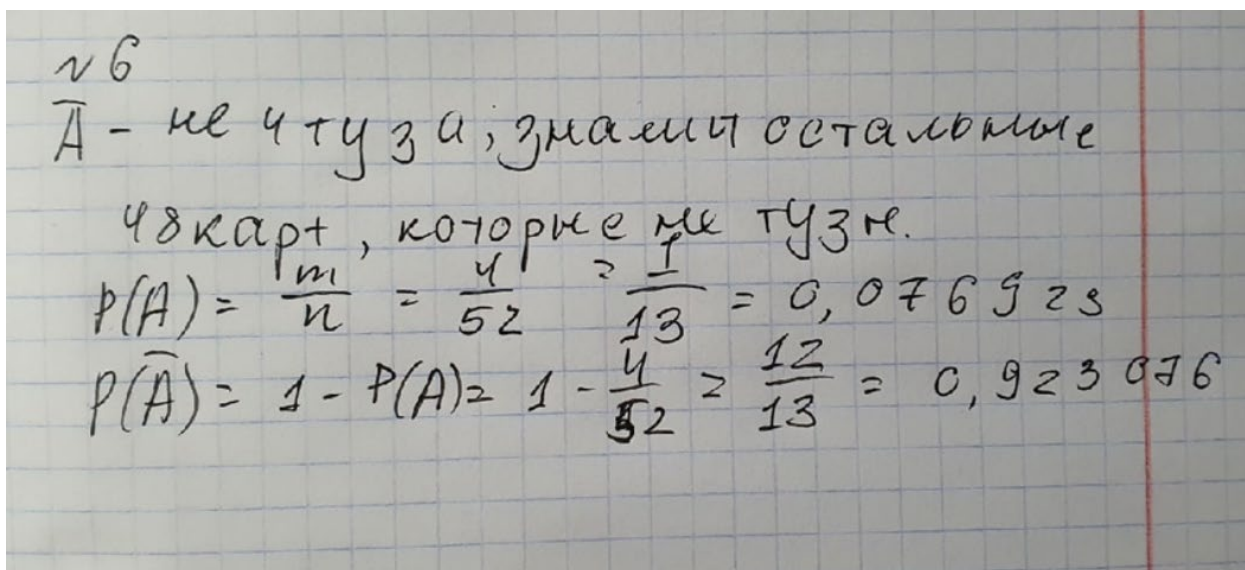 № 6
Ā - не 4 туза, знамит остальные
48 карт, которые не тузы.
P(A) = m/n = 4/52 = 1/13 = 0,076923
P(Ā) = 1 - P(A) = 1 - 4/52 = 12/13 = 0,923076